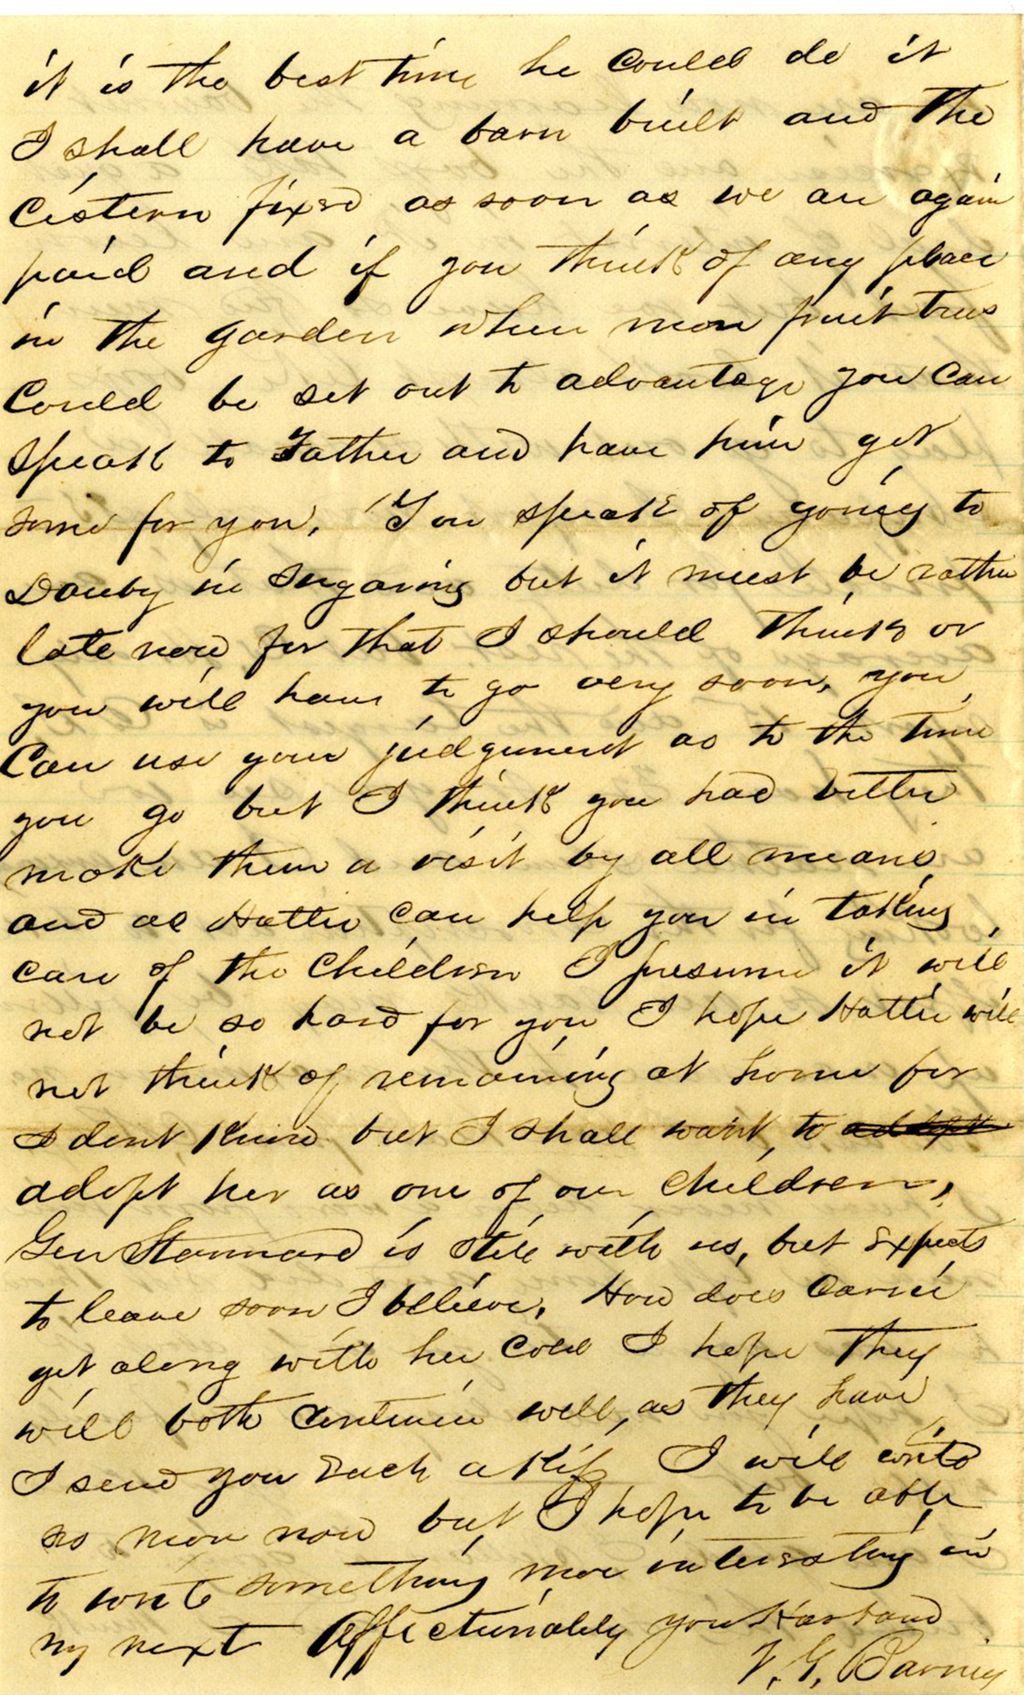 it is the best time he could do it
I shall have a barn built and the
Cistern fixed as soon as we are again
paid and if you think of any place
in the garden where more fruit trees
Could be set out to advantage you Can
Speak to Father and have him get
some for you. You speak of going to
Danby in Sugaring but it must be rather
late now for that I should think or
you will have to go very soon, you
Can use your judgement as to the time
you go but I think you had better
make them a visit by all means
and as Hattie can help you in taking
care of the Children I presume it will
not be so hard for you I hope Hattie will
not think of remaining at home for
I dont know but I shall want to adopt
adopt her as one of our Children,
Gen Stannard is still with us, but Expects
to leave soon I believe. How does Carrie
get along with her Cold I hope they
will both Continue well, as they have
I send you Each a Kiss I will write
no more now but I hope to be able
to write something more interesting in
my next Affectionately your Husband
V. G. Barney